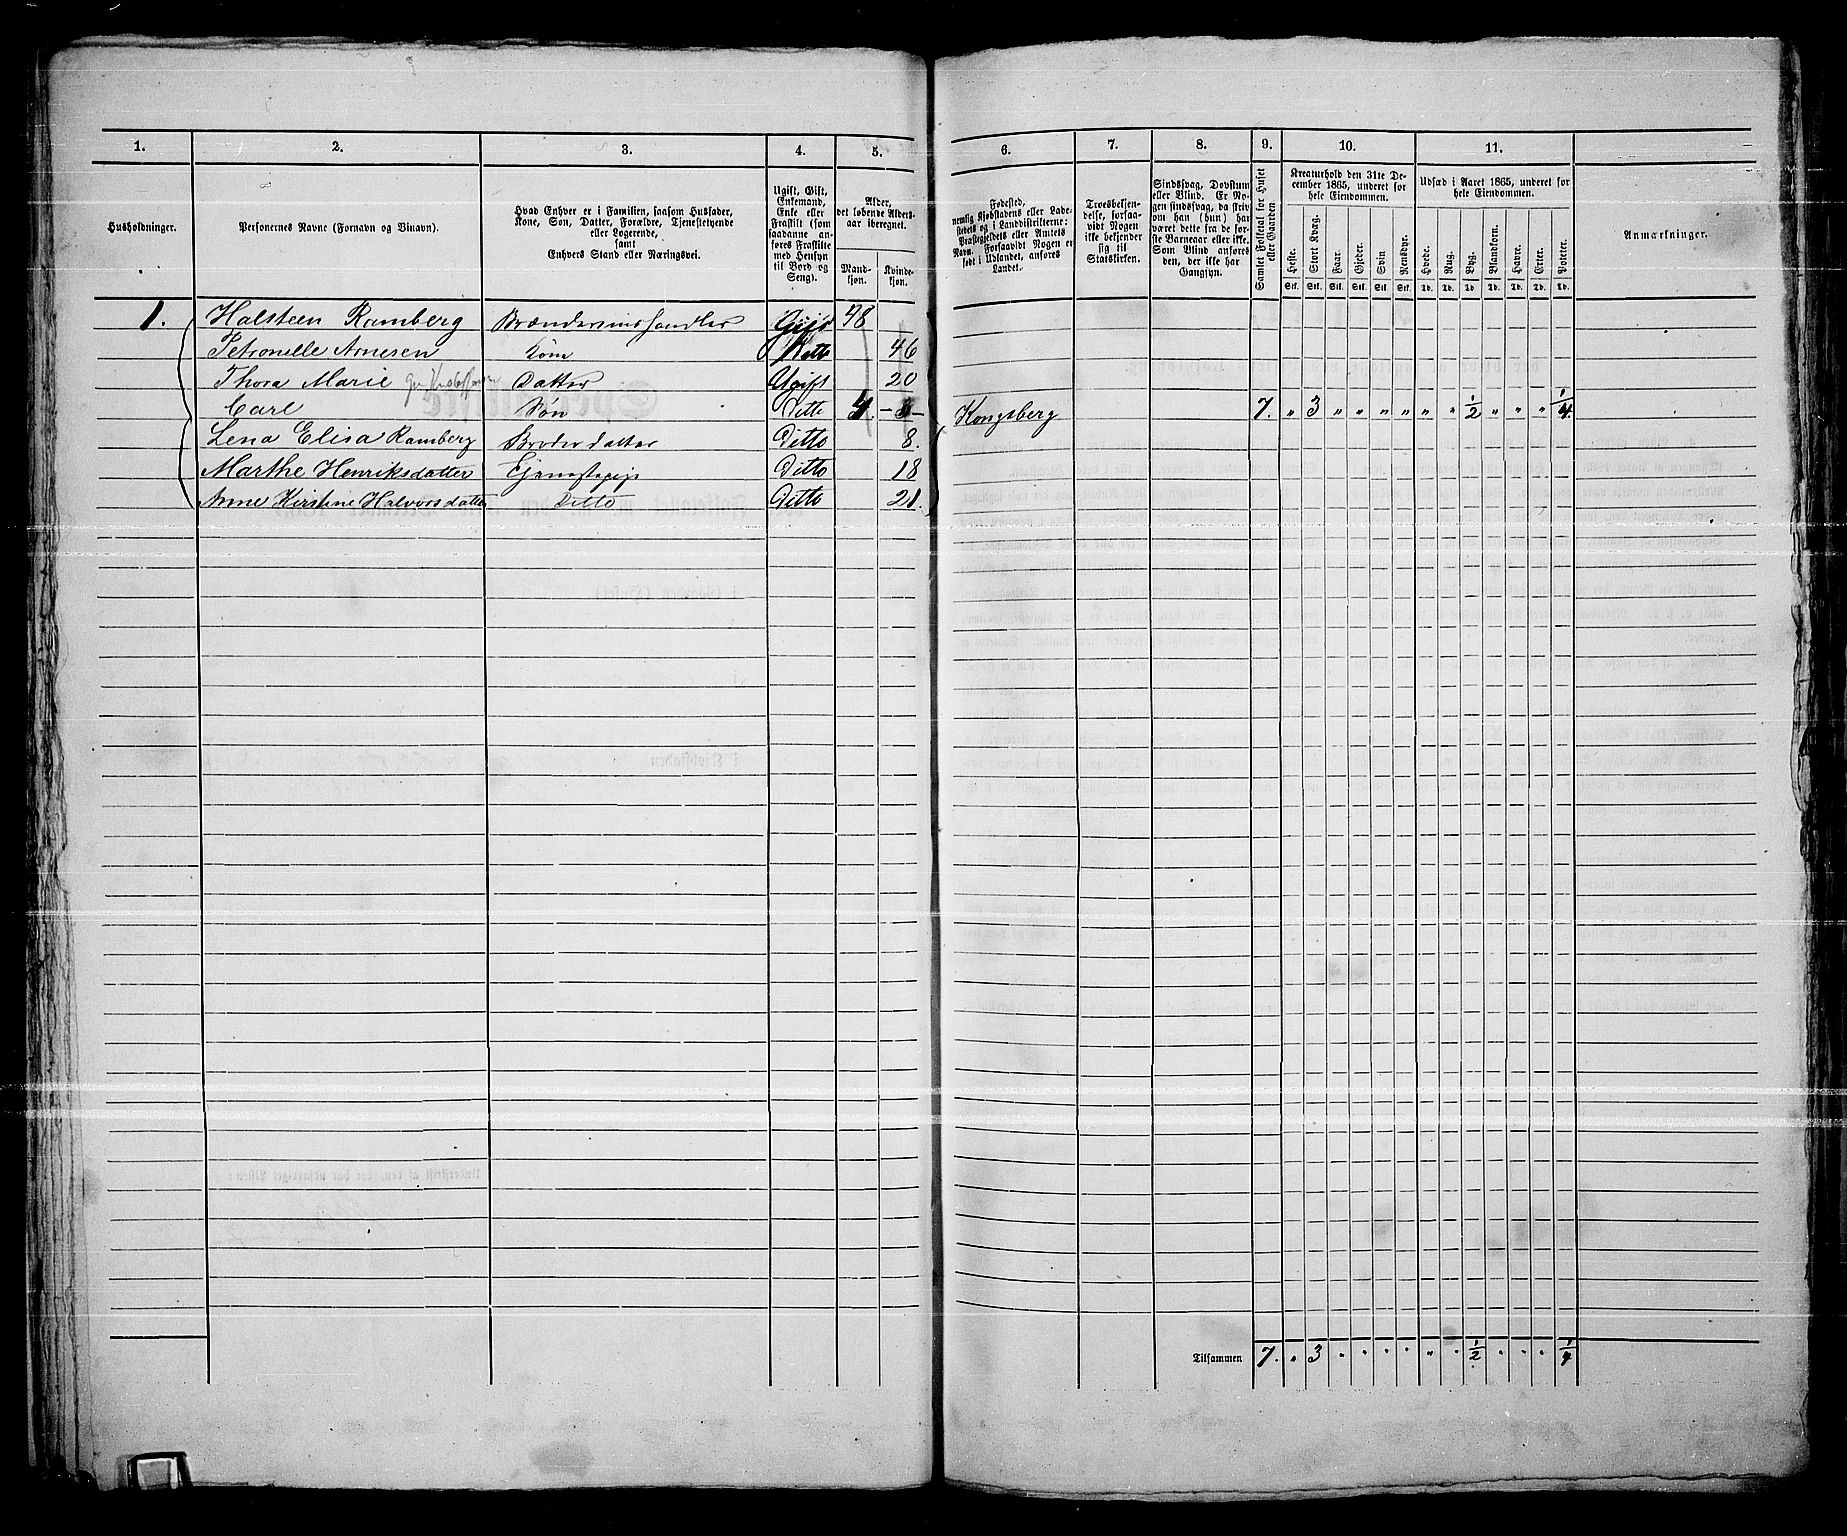 1. 2. 3. 4. 5. 6. 7. 8. 9. 10. 11.
Husholdninger.
Personernes Navne (Fornavn og Vinavn).
Hvad Enhver er i Familien, saasom Husfader,
Kone, Søn, Datter, Forældre, Tjenestetyende
eller Logerende,
samt
Enhvers Stand eller Næringsvei.
Ugift, Gift,
Enkemand,
Enke eller
Fraskilt (som
saadanne an-
føres Fraskilte
med Hensyn
til Bord og
Seng).
Alder,
det løbende Alders-
aar iberegnet.
Mand-
kjøn.
Kvinde-
kjøn.
Fødested,
nemlig Kjøbstadens eller Lade-
stedets og i Landdistrikterne:
Præstegjeldets eller Amtets
Navn. Forsaavidt Nogen er
født i Udlandet, anføres
Landet.
Troesbekjen-
delse, forsaa-
vidt Nogen
ikke bekjender
sig til
Statskirken.
Sindssvag, Døvstum
eller Blind. Er No-
gen sindssvag, da skriv
om han (hun) har
været dette fra de før-
ste Barneaar eller ikke.
Som Blind anføres
den, der ikke har
Gangsyn.
Samlet Folketal for Huset
eller Gaarden
Kreaturhold den 31te De-
cember 1865, underet for
hele Eiendommen.
Heste. Stort Kvæg. Faar. Gjeder. Svin Rensdyr.
Stk. Stk. Stk. Stk. Stk. Stk.
Udsæd i Aaret 1865, underet for
hele Eiendommen.
Hvede. Rug. Byg. Blandkorn. Havre. Erter. Poteter.
Td. Td. Td Td. Td. Td. Td.
Anmærkninger.
1. Halsteen Ramberg Brændevinshandler Gift 48
Petronelle Arnesen Kone Ditto 46
Thora Marie Datter Ugift 20
Carl Søn Ditto 4. Kongsberg 7. " 3 " " " " " " 1/2 " " " 1/4
Lena Elisa Ramberg Broderdatter Ditto 8.
Marthe Henriksdatter Tjenestepige Ditto 18
Anne Kirstine Halvorsdatter Ditto Ditto 21.
Tilsammen 7. " 3 " " " " " " 1/2 " " " 1/4